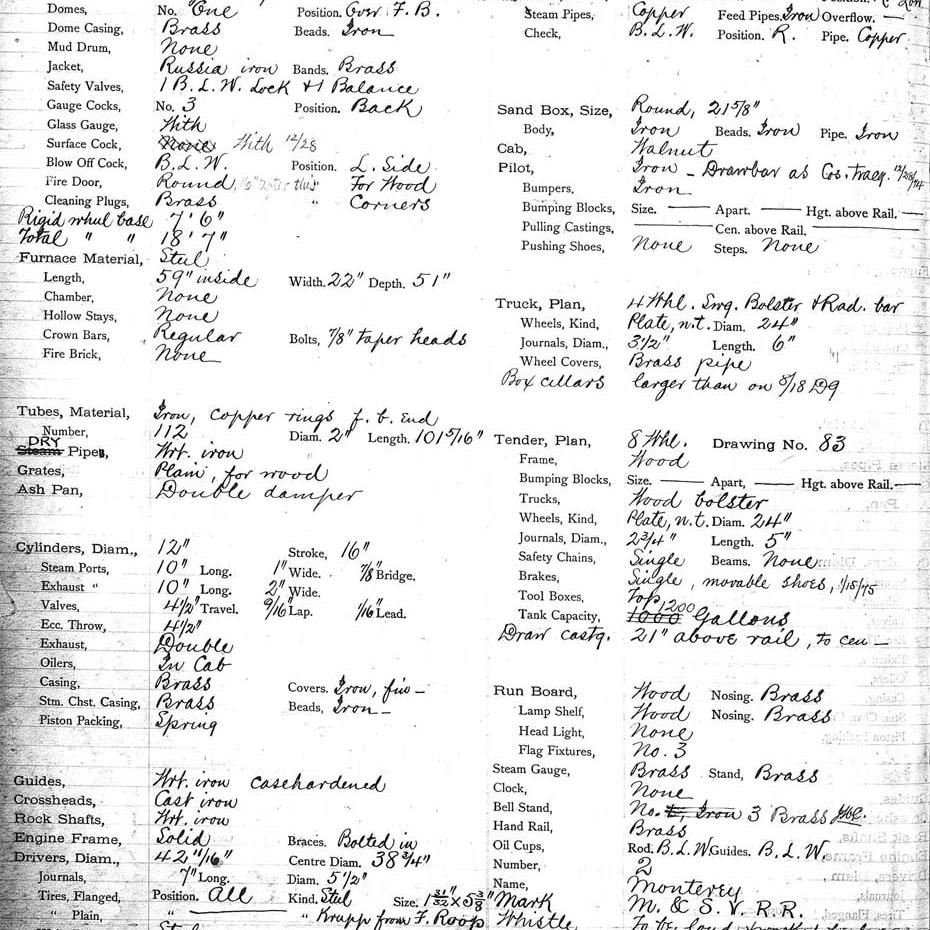 Domes, No. "One Position. Over F. B.
Dome Casing, Brass Beads. Iron
Mud Drum, None
Jacket, Russia iron Bands. Brass
Safety Valves, 1 B. L. W. Lock +1 Balance
Gauge Cocks, No. 3 Position. Back
Glass Gauge, With
Surface Cock, None With 12/28
Blow Off Cock, B. L. W. Position. L. Side
Fire Door, Round, 16" For Wood
Cleaning Plugs, Brass " Corners
Rigid wheel base 7' 6"
Total " " 18' 7"
Furnace Material, Steel
Length, 59" inside Width. 22" Depth. 51"
Chamber, None
Hollow Stays, None
Crown Bars, Regular Bolts, 7/8" taper heads
Fire Brick, None
Tubes, Material, Iron, copper rings f. b. end
Number, 112 Diam. 2" Length. 101 5/16"
DRY
Steam Pipes, Wrt. iron
Grates, Plain, for wood
Ash Pan, Double damper
Cylinders, Diam., 12" Stroke, 16"
Steam Ports, 10" Long. 1" Wide. 7/8" Bridge.
Exhaust " 10" Long. 2" Wide.
Valves, 4 1/2" Travel. 9/16" Lap. 1/16" Lead.
Ecc. Throw, 4 1/2"
Exhaust, Double
Oilers, In Cab
Casing, Brass Covers. Iron, fin —
Stm. Chst. Casing, Brass Beads, Iron —
Piston Packing, Spring
Guides, Wrt. iron casehardened
Crossheads, Cast iron
Rock Shafts, Wrt. iron
Engine Frame, Solid Braces. Bolted in
Drivers, Diam., 42 11/16" Centre Diam. 38 3/4"
Journals, 7" Long. Diam. 5 1/2"
Tires, Flanged, Position. All Kind. Steel Size. 1 31/32" x 5 3/8"
" Plain, " " Krupp from F. Roop
Steam Pipes, Copper Feed Pipes. Iron Overflow. —
Check, B. L. W. Position. R. Pipe. Copper
Sand Box, Size, Round, 21 5/8"
Body, Iron Beads. Iron Pipe. Iron
Cab, Walnut
Pilot, Iron — Drawbar as Cos. 12/28/74
Bumpers, Iron
Bumping Blocks, Size. — Apart. — Hgt. above Rail. —
Pulling Castings, — Cen. above Rail. —
Pushing Shoes, None Steps. None
Truck, Plan, 4 Whl. Swg. Bolster + Rad. bar
Wheels, Kind, Plate, n.t. Diam. 24"
Journals, Diam., 3 1/2" Length. 6"
Wheel Covers, Brass pipe
Box cellars larger than on 8/18 D 9
Tender, Plan, 8 Whl. Drawing No. 83
Frame, Wood
Bumping Blocks, Size. — Apart, — Hgt. above Rail. —
Trucks, Wood bolster
Wheels, Kind, Plate, n.t. Diam. 24"
Journals, Diam., 2 3/4" Length. 5"
Safety Chains, Single Beams. None
Brakes, Single, movable shoes, 1/15/75
Tool Boxes, Top
Tank Capacity, 1000 1200 Gallons
Draw castg. 21" above rail, to cen —
Run Board, Wood Nosing. Brass
Lamp Shelf, Wood Nosing. Brass
Head Light, None
Flag Fixtures, No. 3
Steam Gauge, Brass Stand, Brass
Clock, None
Bell Stand, No. Iron 3 Brass
Hand Rail, Brass
Oil Cups, Rod. B. L. W. Guides. B. L. W.
Number, 2
Name, Monterey
Mark M. & S. V. R. R.
Whistle